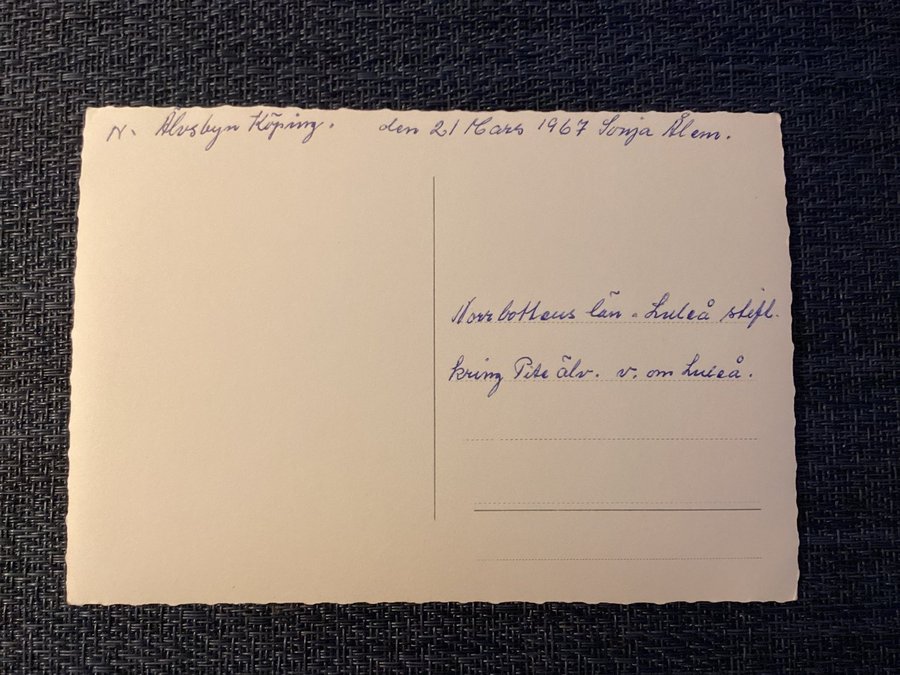 N. Älvsbyn Köping. den 21 Mars 1967 Sonja Ålem.
Norrbottens län. Luleå stift.
kring Pite älv. v. om Luleå.